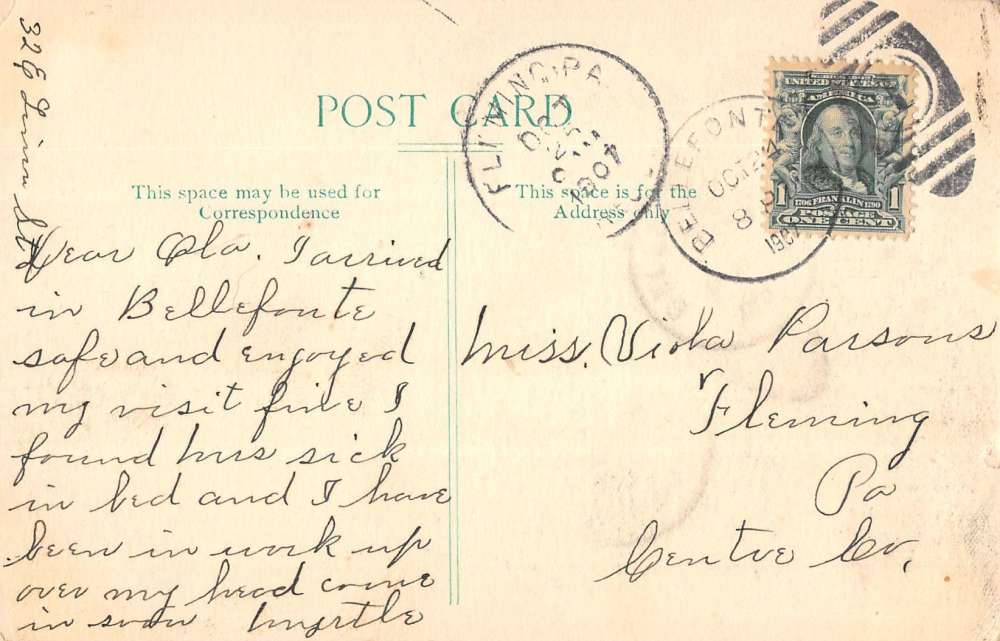 32 E Linn St
POST CARD
This space may be used for
Correspondence
This space is for the
Address only
FLEMING, PA
OCT
1907
BELLEFONTE
OCT 24
8
1907
UNITED STATES OF
AMERICA
1 1
1706 FRANKLIN 1790
POSTAGE
ONE CENT
Dear Ola. I arrived
in Bellefonte
safe and engoyed
my visit fine I
found hus sick
in bed and I have
been in work up
over my head come
in soon Myrtle
Miss. Viola Parsons
Fleming
Pa
Centre Co,